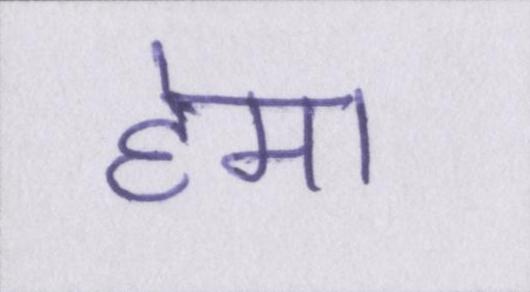 हेमा